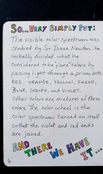 So...Very Simply Put:
The visible color spectrum was
studied by Sir Isaac Newton. He
initially divided what he
considered to be "pure" colors by
passing light through a prism into
RED, ORANGE, YELLOW, GREEN,
BLUE, INDIGO, and VIOLET.
Other colors are mixtures of these
colors. The color wheel is the
color spectrum turned on itself
so that the violet and red ends
are joined.
AND THERE WE HAVE
IT...